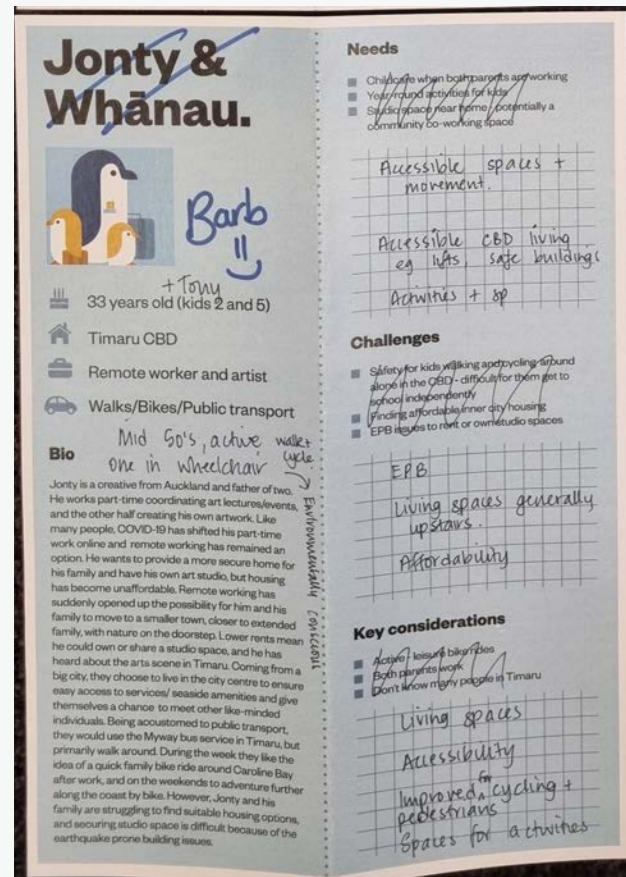 Jonty &
Whānau.
Barb
+ Tony
33 years old (kids 2 and 5)
Timaru CBD
Remote worker and artist
Walks/Bikes/Public transport
Mid 50's, active walk+
cycle.
one in wheelchair
Environmentally conscious
Bio
Jonty is a creative from Auckland and father of two.
He works part-time coordinating art lectures/events,
and the other half creating his own artwork. Like
many people, COVID-19 has shifted his part-time
work online and remote working has remained an
option. He wants to provide a more secure home for
his family and have his own art studio, but housing
has become unaffordable. Remote working has
suddenly opened up the possibility for him and his
family to move to a smaller town, closer to extended
family, with nature on the doorstep. Lower rents mean
he could own or share a studio space, and he has
heard about the arts scene in Timaru. Coming from a
big city, they choose to live in the city centre to ensure
easy access to services/ seaside amenities and give
themselves a chance to meet other like-minded
individuals. Being accustomed to public transport,
they would use the Myway bus service in Timaru, but
primarily walk around. During the week they like the
idea of a quick family bike ride around Caroline Bay
after work, and on the weekends to adventure further
along the coast by bike. However, Jonty and his
family are struggling to find suitable housing options,
and securing studio space is difficult because of the
earthquake prone building issues.
Needs
Childcare when both parents are working
Year-round activities for kids
Studio space near home, potentially a
community co-working space
Accessible spaces +
movement.
Accessible CBD living
eg lifts, safe buildings
Activities + sp
Challenges
Safety for kids walking and cycling around
alone in the CBD - difficult for them get to
school independently
Finding affordable inner city housing
EPB issues to rent or own studio spaces
EPB
Living spaces generally
upstairs.
Affordability
Key considerations
Active / leisure bike rides
Both parents work
Don't know many people in Timaru
Living spaces
Accessibility
Improved for cycling +
pedestrians
Spaces for activities